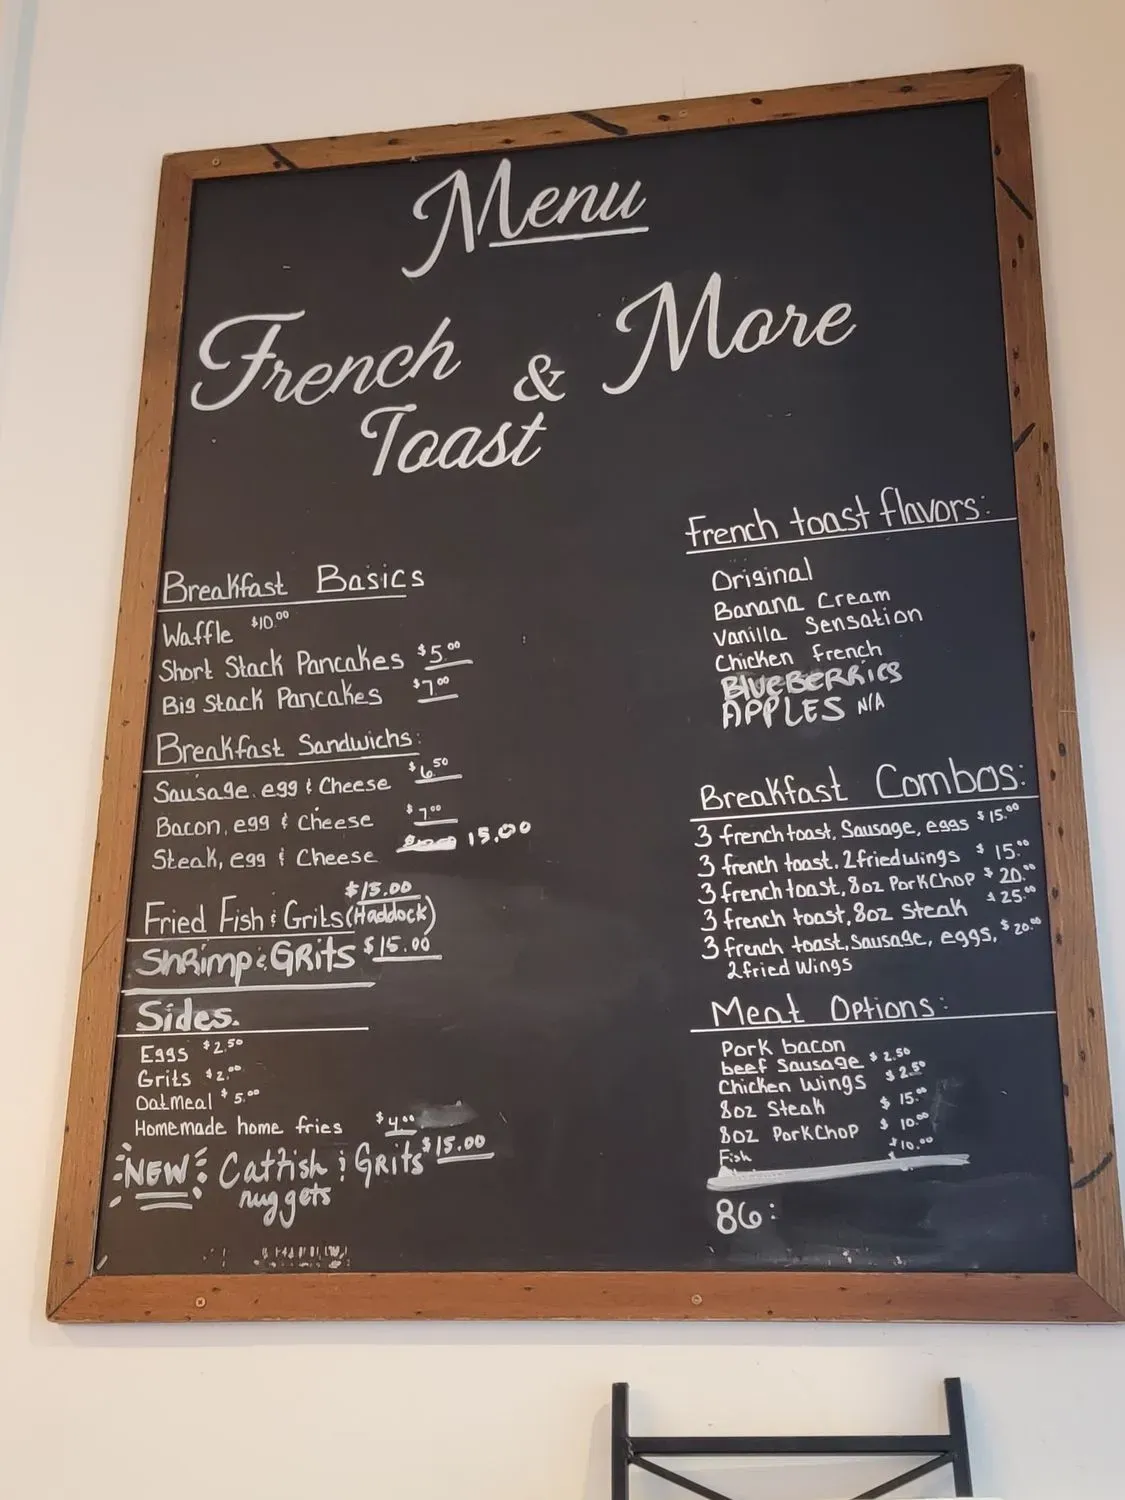 Menu
French & More
Toast
Breakfast Basics
Waffle $10.00
Short Stack Pancakes $5.00
Big Stack Pancakes $7.00
Breakfast Sandwichs:
Sausage, egg & Cheese $6.50
Bacon, egg & Cheese $7.00
Steak, egg & Cheese 15.00
$15.00
Fried Fish & Grits (Haddock)
Shrimp & GRits $15.00
Sides.
Eggs $2.50
Grits $2.00
Oatmeal $5.00
Homemade home fries $4.00
NEW! Catfish & GRits $15.00
nuggets
French toast flavors:
Original
Banana Cream
Vanilla Sensation
Chicken French
BLUEBERRiES
APPLES N/A
Breakfast Combos:
3 french toast, Sausage, eggs $15.00
3 french toast. 2 fried wings $15.00
3 french toast, 8oz PorkChop $20.00
3 french toast, 8oz Steak $25.00
3 french toast, Sausage, eggs, $20.00
2 fried Wings
Meat Options:
Pork bacon
beef Sausage $2.50
Chicken Wings $2.50
8oz Steak $15.00
8oz PorkChop $10.00
Fish $10.00
86: